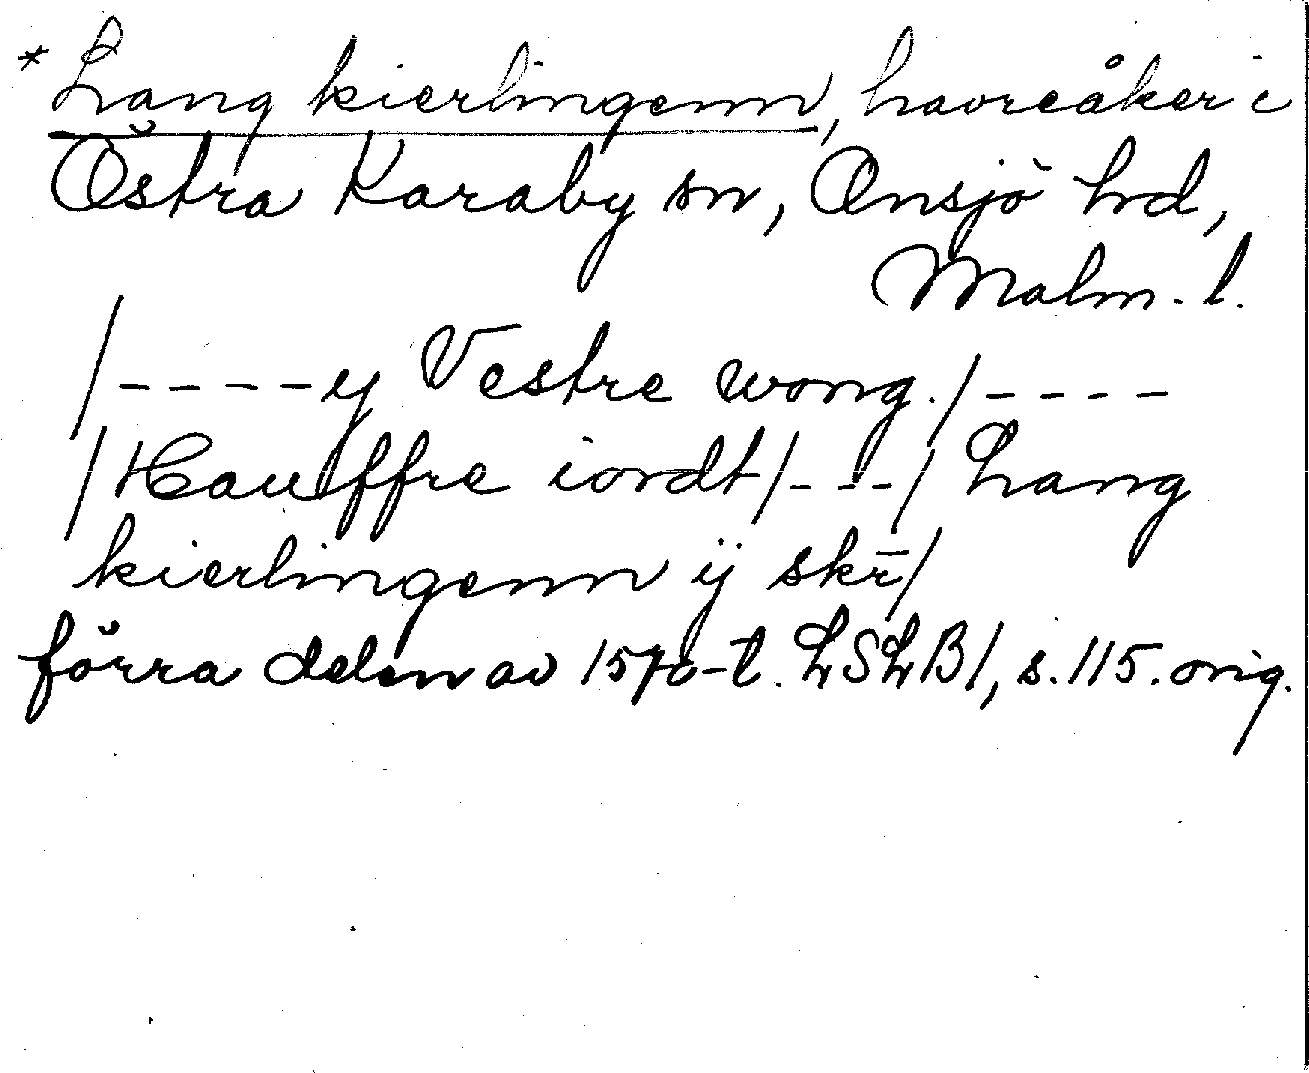 * Lang kierlingenn, havreåker i
Östra Karaby sn, Onsjö hd,
Malm. l.
/----y Vestre wong./----
/Hauffre iordt/---/Lang
kierlingenn ij skr̄/
förra delen av 1570-t. LSLB1, s. 115. orig.